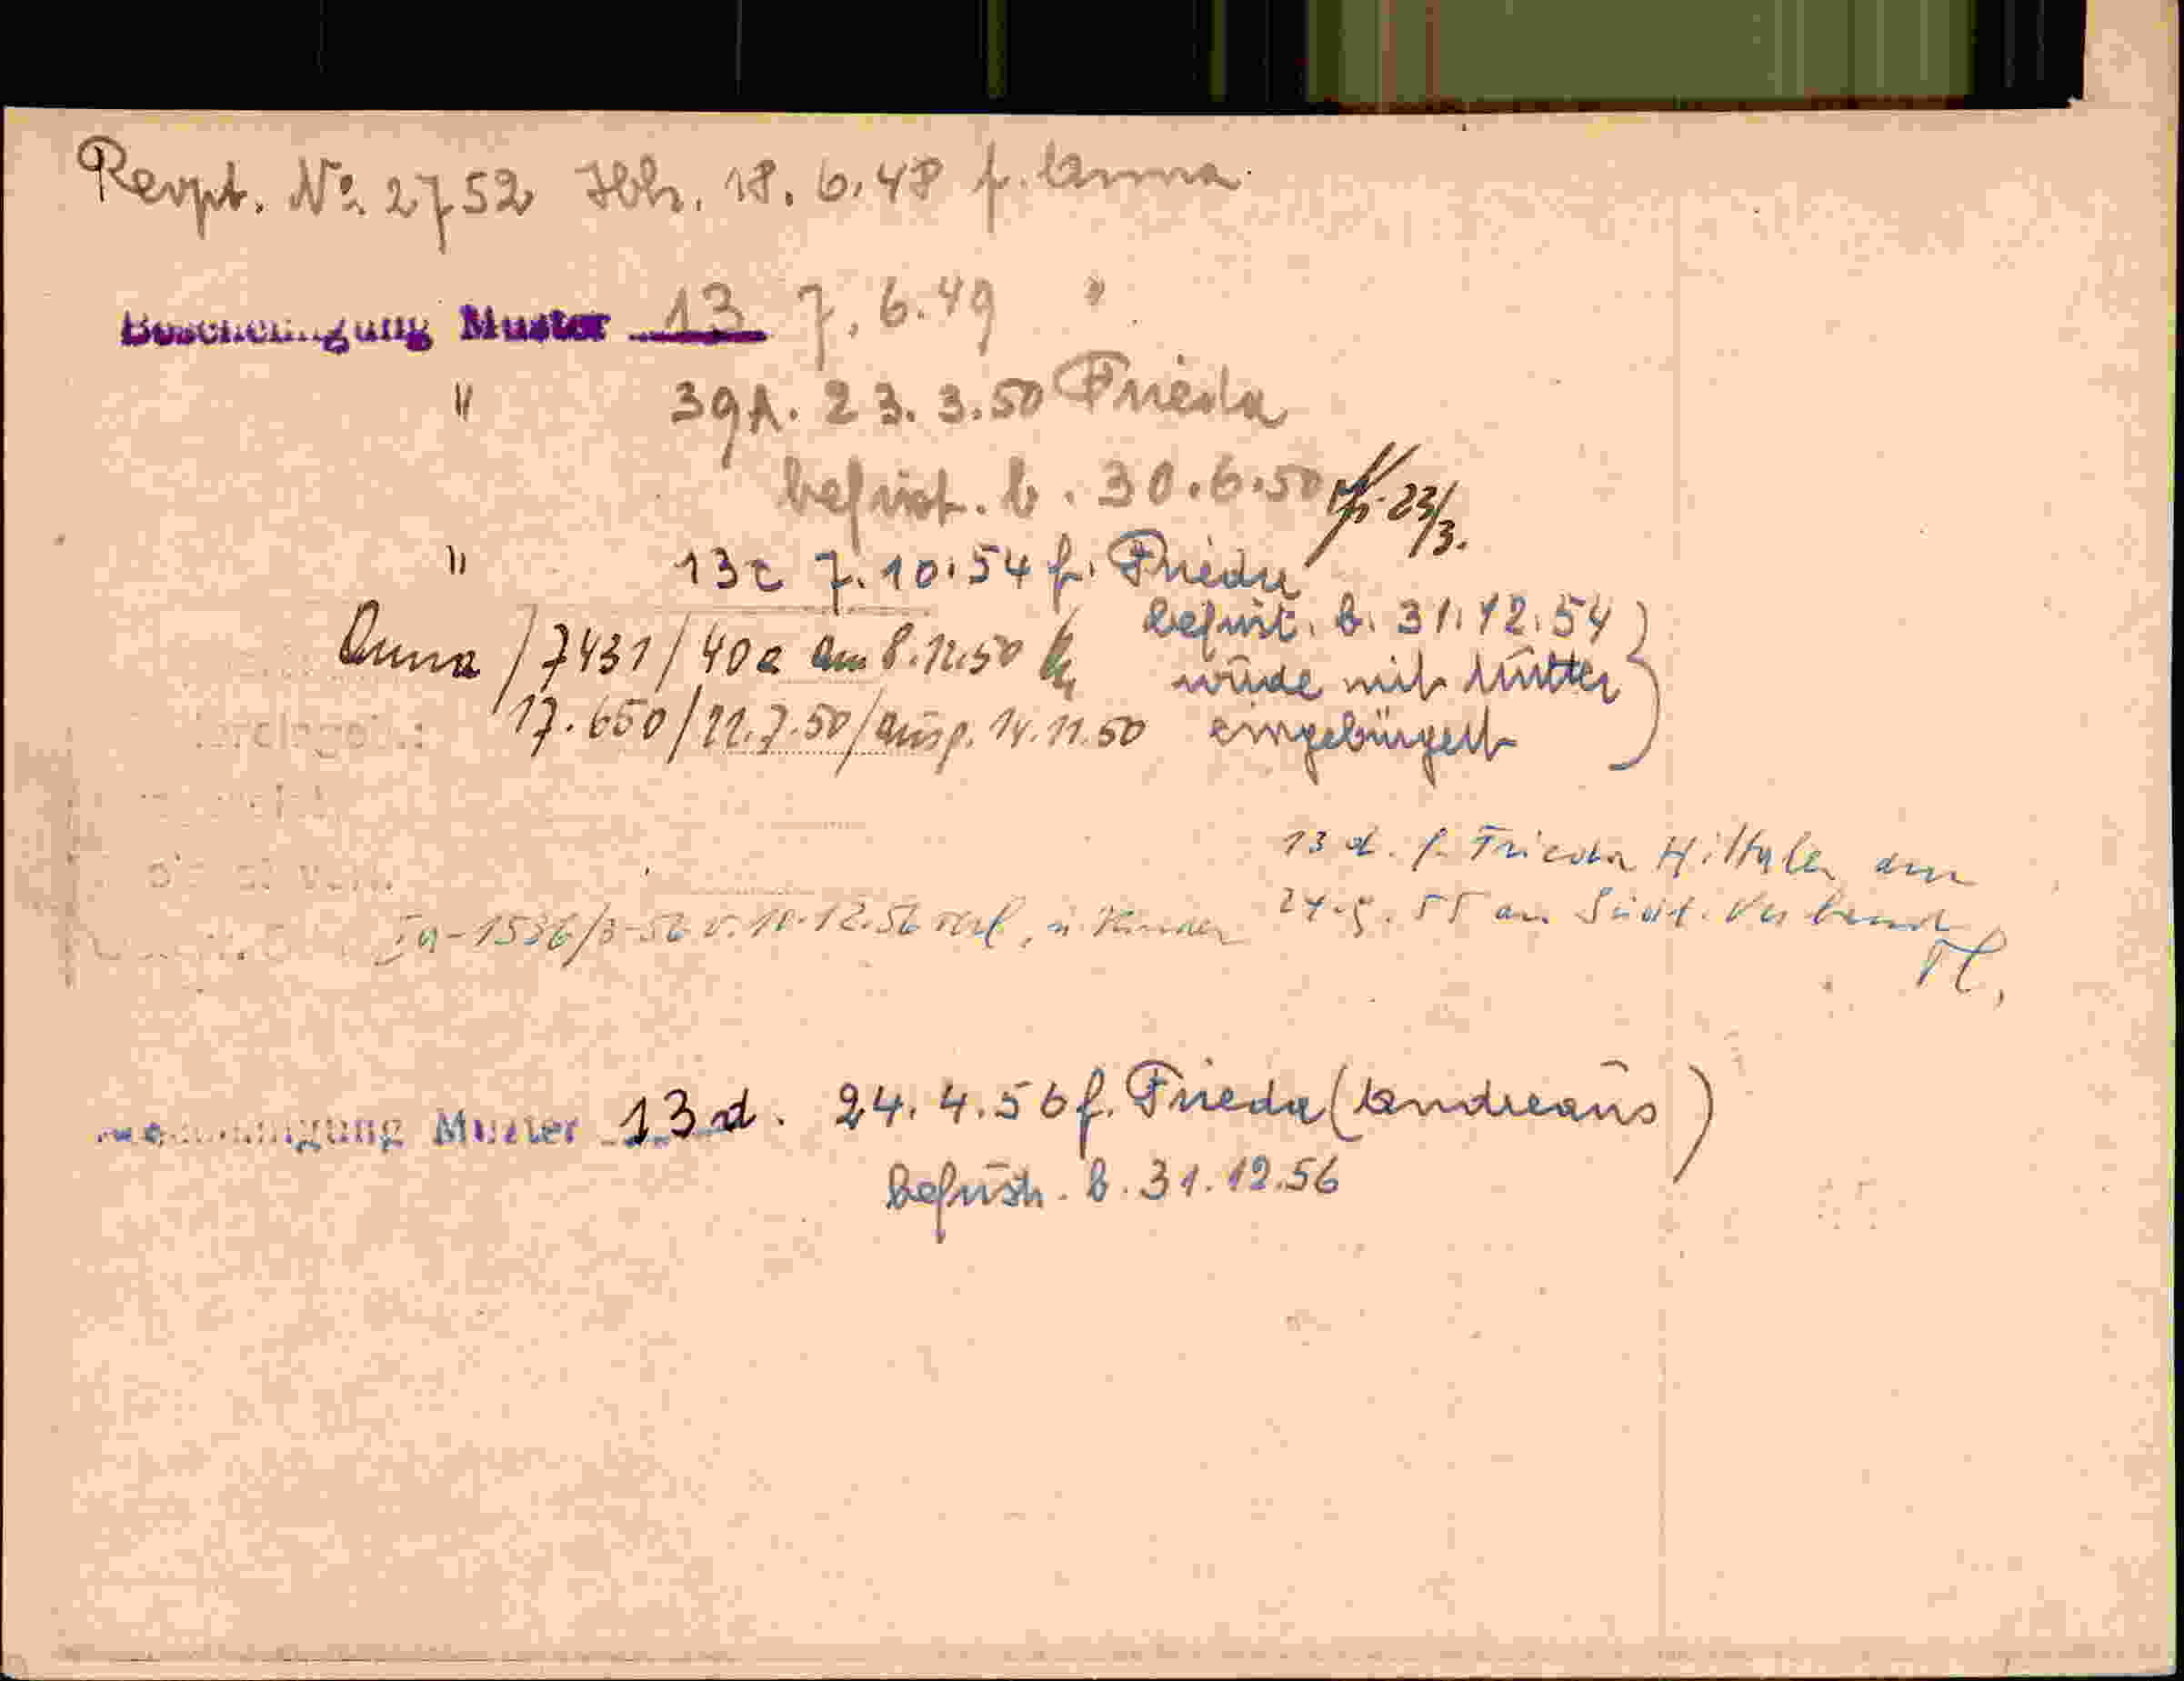 Revpt. No. 2752 Hbh. 18.6.48 f. Anna
Bescheinigung Muster 13 7.6.49 "
" 39A. 23.3.50 Frieda
befrist. b. 30.6.50 23/3.
" 13c 7.10.54 f. Frieda
befrist. b. 31.12.54
Anna / 7431 / 40a am 8.12.50
wurde mit Mutter
17.650 / 22.7.50 / ausg. 14.11.50
eingebürgert
13 d. f. Frieda am
24.5.55 an Südt. Verband
Ia-1536/3-56 v. 10.12.56
Bescheinigung Muster 13d. 24.4.56 f. Frieda (Andreaus)
befrist. b. 31.12.56